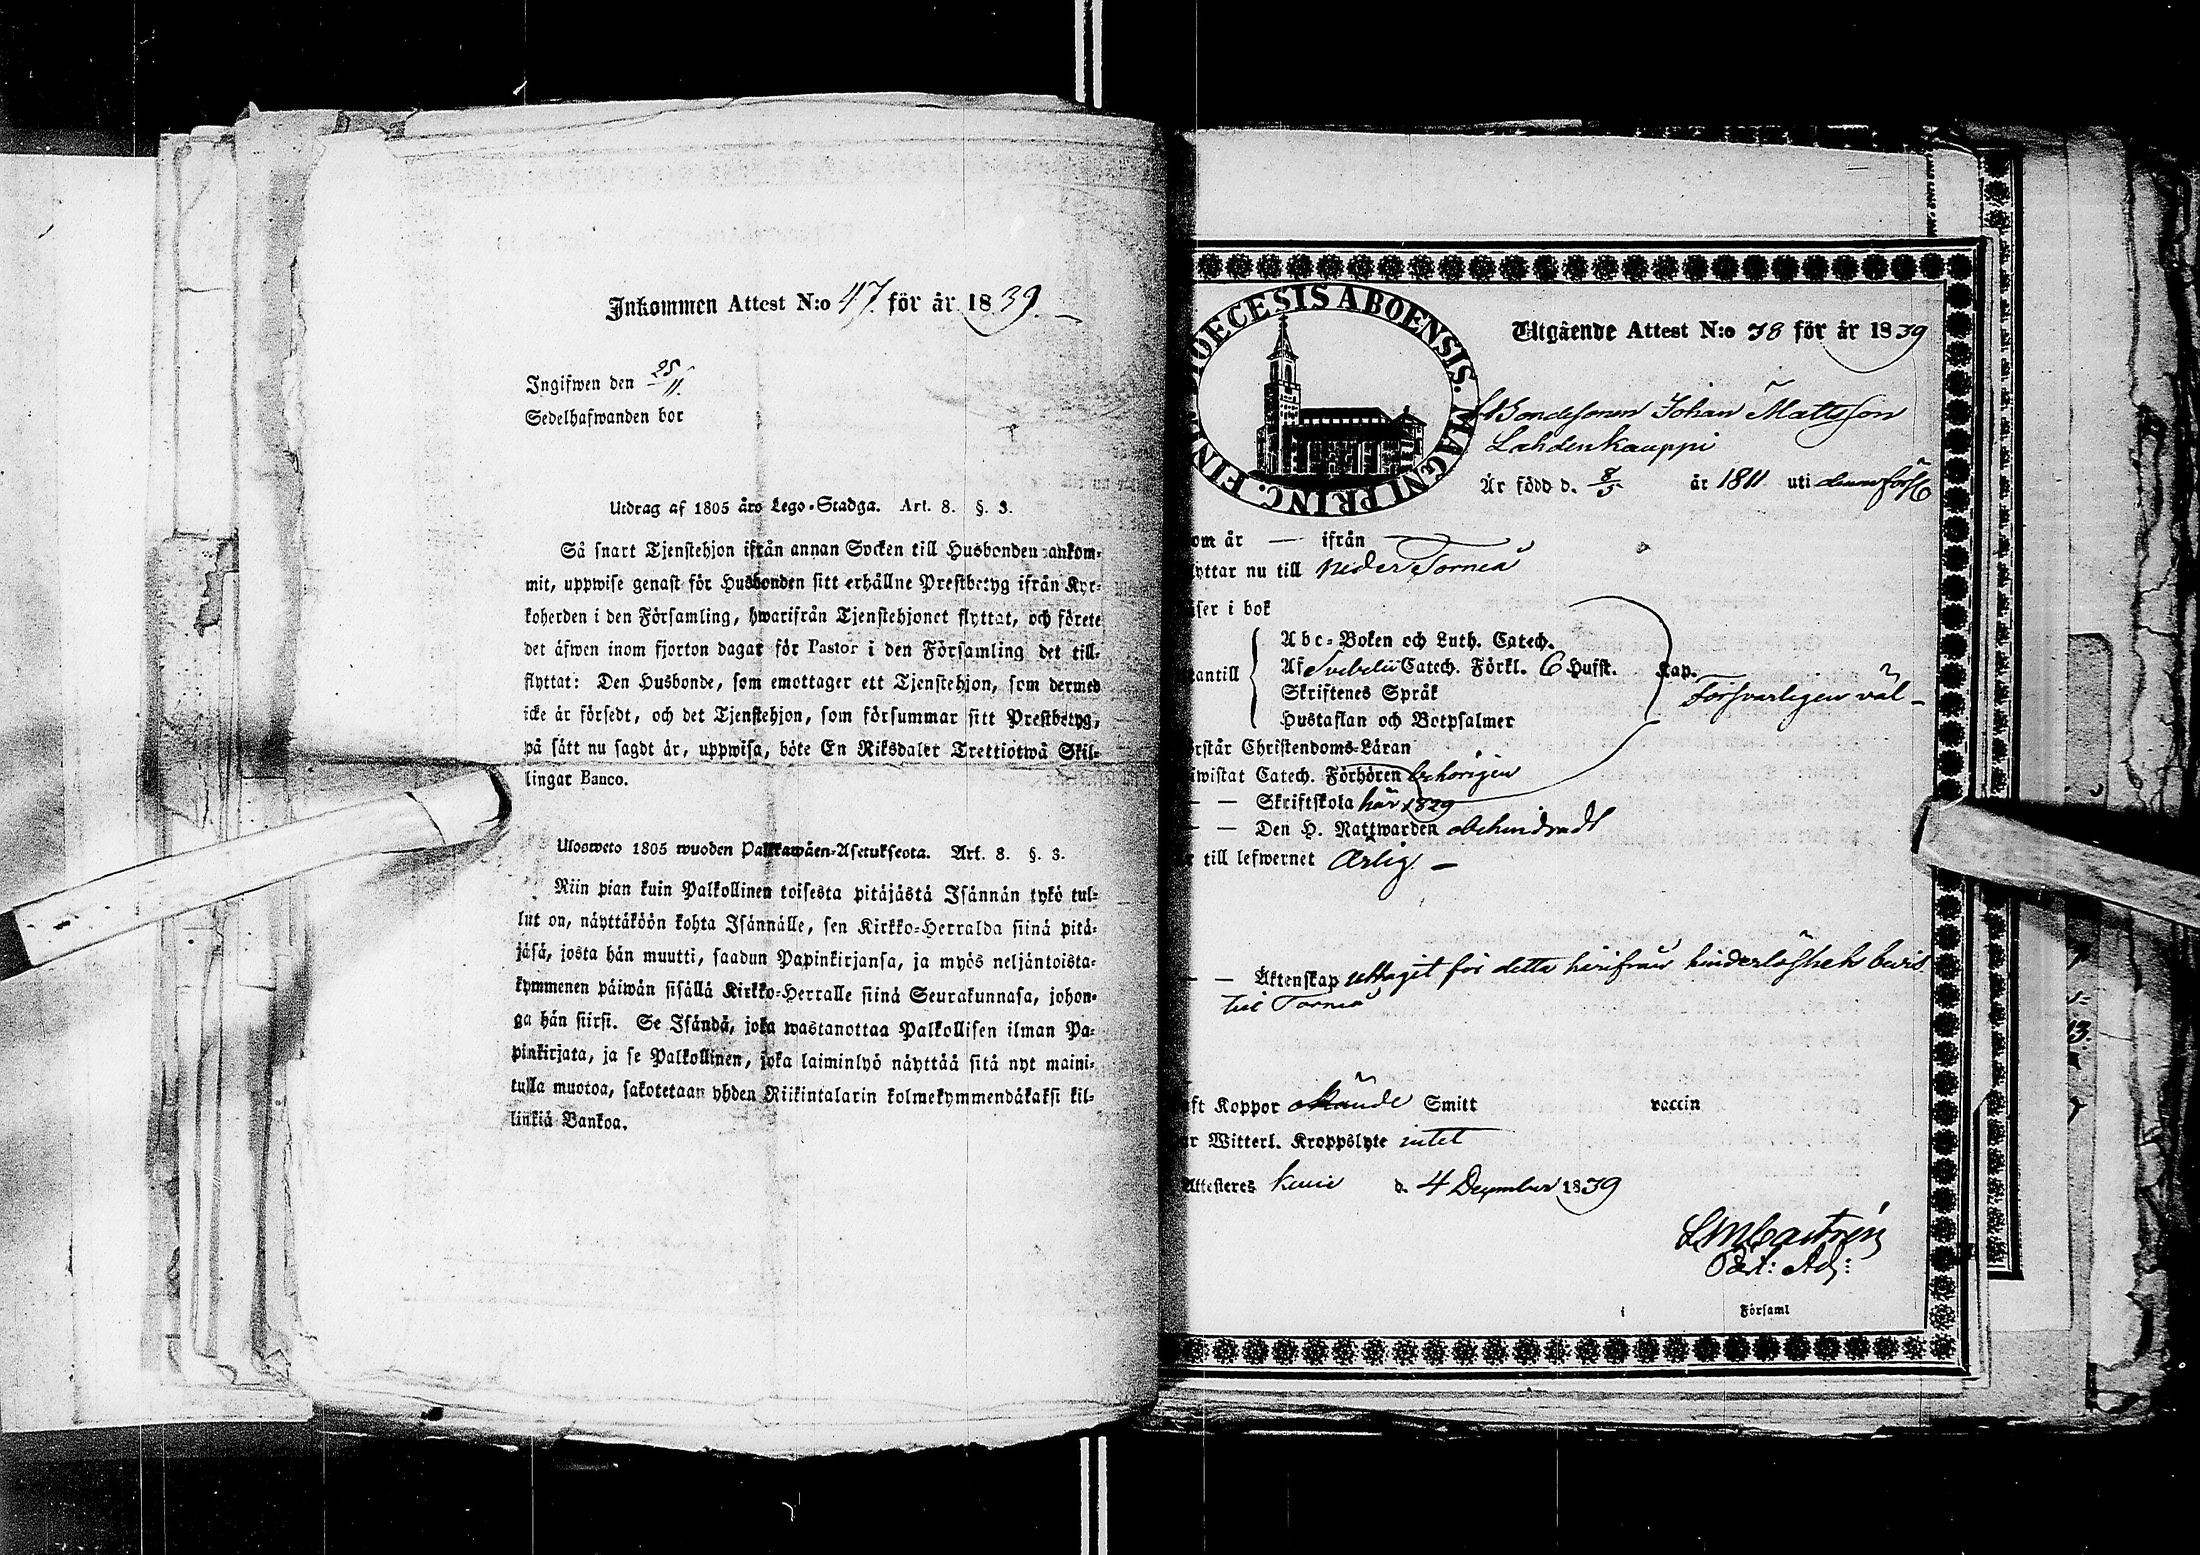 Inkommen Attest N:o 47. för år 1839.
Ingifwen den 25/11.
Sedelhafwanden bor
Utdrag af 1805 åro Lego-Stadga. Art. 8. §. 3.
Så snart Tjenstehjon ifrån annan Socken till Husbonden ankom-
mit, uppwise genast för Husbonden sitt erhållne Prestbetyg ifrån Kyr-
koherden i den Församling, hwarifrån Tjenstehjonet flyttat, och förete
det äfwen inom fjorton dagar för Pastor i den Församling det till-
flyttat: Den Husbonde, som emottager ett Tjenstehjon, som dermed
icke är försedt, och det Tjenstehjon, som försummar sitt Prestbetyg,
på sätt nu sagdt är, uppwisa, böte En Riksdaler Trettiotwå Skil-
lingar Banco.
Ulosweto 1805 wuoden Palkawäen-Asetuksesta. Art. 8. §. 3.
Niin pian kuin Palkollinen toisesta pitäjästä Isännän tykö tul-
lut on, näyttäköön kohta Isännälle, sen Kirkko-Herralda siinä pitä-
jäsä, josta hän muutti, saadun Papinkirjansa, ja myös neljäntoista-
kymmenen päiwän sisällä Kirkko-Herralle siinä Seurakunnasa, johon-
ga hän siirsi. Se Isändä, joka wastanottaa Palkollisen ilman Pa-
pinkirjata, ja se Palkollinen, joka laiminlyö näyttää sitä nyt maini-
tulla muotoa, sakotetaan yhden Riikintalarin kolmekymmendäkaksi kil-
linkiä Bankoa.
DIOECESIS ABOENSIS. MAGNI PRINC. FINL
Utgående Attest N:o 78 för år 1839
Bondesonen Johan Mattsson
Lahdenkauppi
Är född d. 8/5 år 1811 uti denna förs
om år — ifrån —
yttar nu till Neder Torneå
äser i bok
Abc-Boken och Luth. Catech.
Af Svebelii Catech. Förkl. 6 Hufst. Kap.
antill
Skriftenes Språk
Försvarligen väl -
Hustaflan och Botpsalmer
rstår Christendoms-Läran
wistat Catech. Förhören behörigen
— Skriftskola här 1829
— Den H. Nattwarden obehindradt
till lefwernet Ärlig. —
— Äktenskap uttaget för detta härifrån hinderlöshets bevis
till Torneå
ft Koppor Smitt vaccin
r Witterl. Kroppslyte intet
Attesteres Kemi d. 4 December 1839
Castrén
Past: Adj:
i Församl